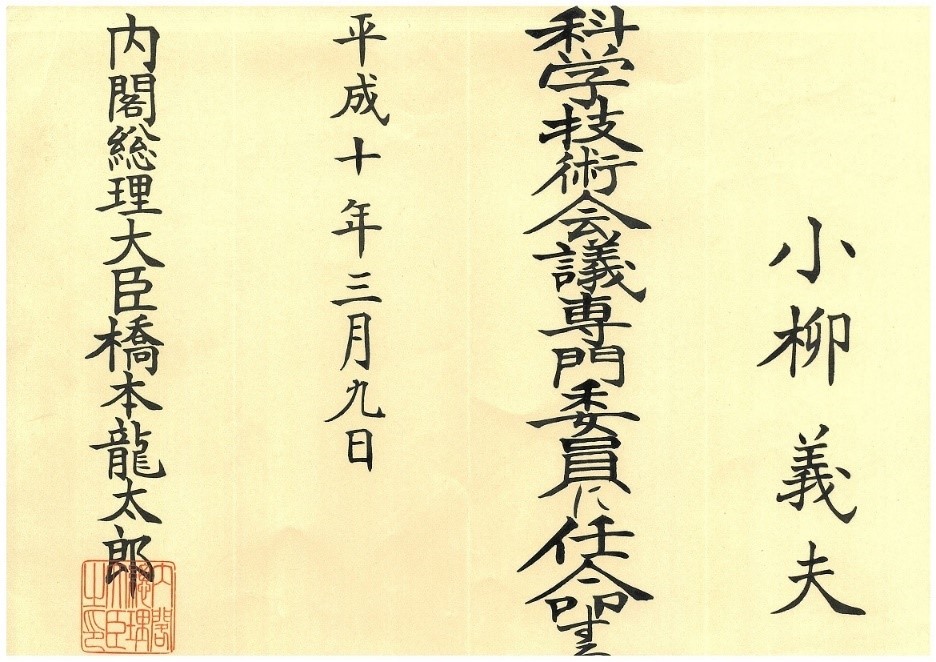 小柳義夫
科学技術会議専門委員に任命する
平成十年三月九日
内閣総理大臣橋本龍太郎
内閣
総理
大臣
之印